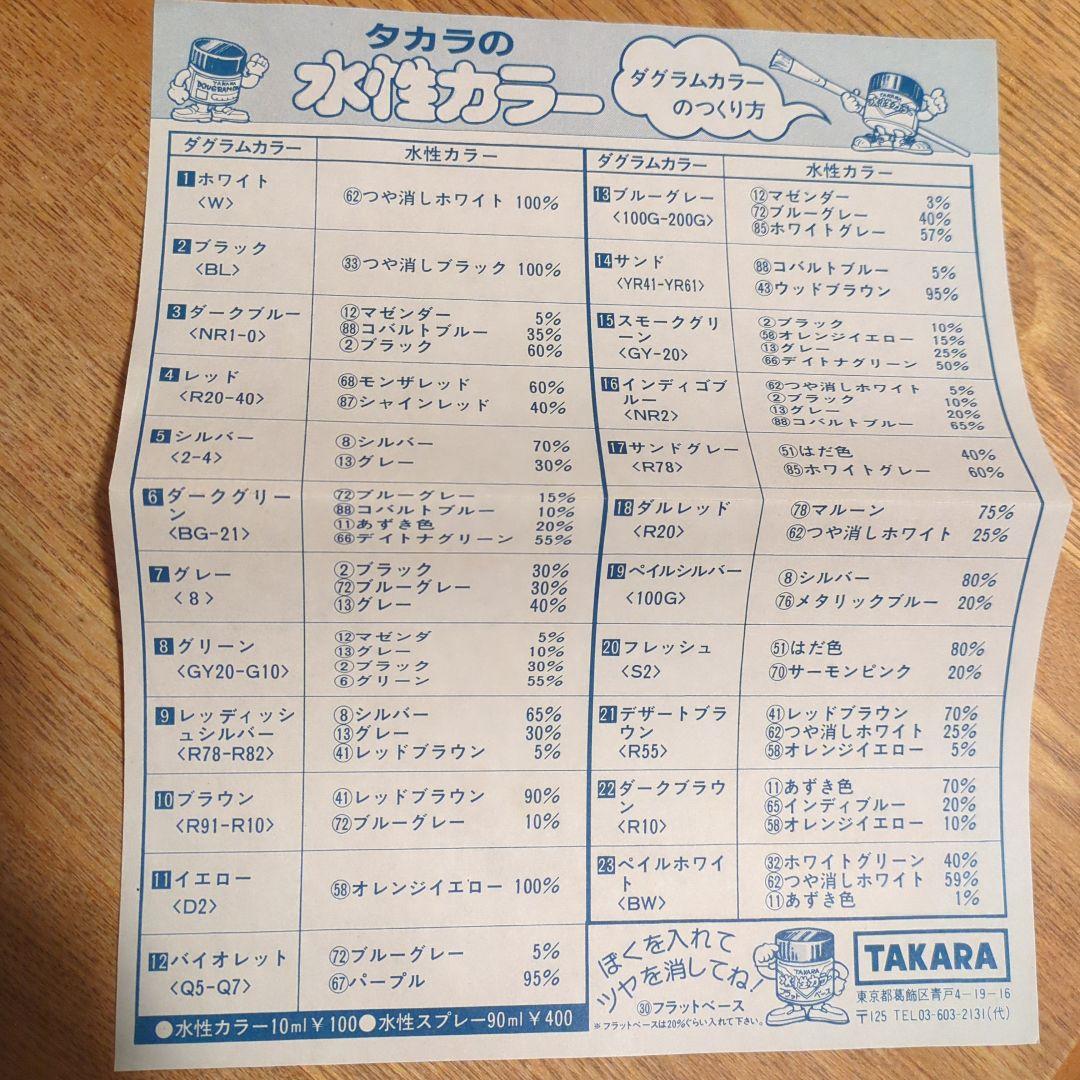 タカラの
水性カラー
ダグラムカラー
のつくり方
TAKARA
DOUGRAM
TAKARA
水性カラー
ダグラムカラー 水性カラー
1 ホワイト
<W>
62つや消しホワイト 100%
2 ブラック
<BL>
33つや消しブラック 100%
3 ダークブルー
<NR1-0>
12マゼンダー 5%
88コバルトブルー 35%
2ブラック 60%
4 レッド
<R20-40>
68モンザレッド 60%
87シャインレッド 40%
5 シルバー
<2-4>
8シルバー 70%
13グレー 30%
6 ダークグリー
ン
<BG-21>
72ブルーグレー 15%
88コバルトブルー 10%
11あずき色 20%
66デイトナグリーン 55%
7 グレー
<8>
2ブラック 30%
72ブルーグレー 30%
13グレー 40%
8 グリーン
<GY20-G10>
12マゼンダ 5%
13グレー 10%
2ブラック 30%
6グリーン 55%
9 レッディッシ
ュシルバー
<R78-R82>
8シルバー 65%
13グレー 30%
41レッドブラウン 5%
10 ブラウン
<R91-R10>
41レッドブラウン 90%
72ブルーグレー 10%
11 イエロー
<D2>
58オレンジイエロー 100%
12 バイオレット
<Q5-Q7>
72ブルーグレー 5%
67パープル 95%
●水性カラー10ml¥100●水性スプレー90ml¥400
ダグラムカラー 水性カラー
13 ブルーグレー
<100G-200G>
12マゼンダー 3%
72ブルーグレー 40%
85ホワイトグレー 57%
14 サンド
<YR41-YR61>
88コバルトブルー 5%
43ウッドブラウン 95%
15 スモークグリ
ーン
<GY-20>
2ブラック 10%
58オレンジイエロー 15%
13グレー 25%
66デイトナグリーン 50%
16 インディゴブ
ルー
<NR2>
62つや消しホワイト 5%
2ブラック 10%
13グレー 20%
88コバルトブルー 65%
17 サンドグレー
<R78>
51はだ色 40%
85ホワイトグレー 60%
18 ダルレッド
<R20>
78マルーン 75%
62つや消しホワイト 25%
19 ペイルシルバー
<100G>
8シルバー 80%
76メタリックブルー 20%
20 フレッシュ
<S2>
51はだ色 80%
70サーモンピンク 20%
21 デザートブラ
ウン
<R55>
41レッドブラウン 70%
62つや消しホワイト 25%
58オレンジイエロー 5%
22 ダークブラウ
ン
<R10>
11あずき色 70%
65インディブルー 20%
58オレンジイエロー 10%
23 ペイルホワイ
ト
<BW>
32ホワイトグリーン 40%
62つや消しホワイト 59%
11あずき色 1%
ぼくを入れて
ツヤを消してね!
30フラットベース
※フラットベースは20%ぐらい入れて下さい。
TAKARA
水性カラー
フラットベース
TAKARA
東京都葛飾区青戸4-19-16
〒125 TEL03-603-2131(代)